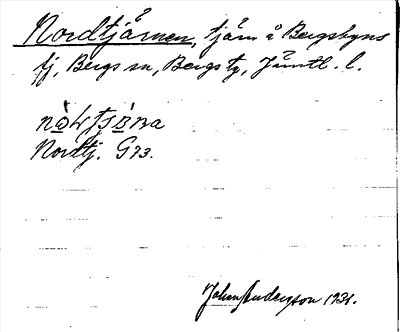 Nordtjärnen, tjärn å Bergsbyns
fj, Bergs sn, Bergs tg, Jämtl. l.
Nordtj. G73.
John Anderzon 1931.